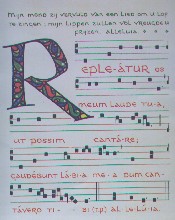 Mijn mond zij vervuld van een lied om u lof
te zingen: mijn lippen zullen vol vreugde u
prijzen alleluia
Repleátur os
meum laude tua,
ut possim cantáre;
gaudébunt lábia mea dum can-
távero tibi (T.P.) allelúia